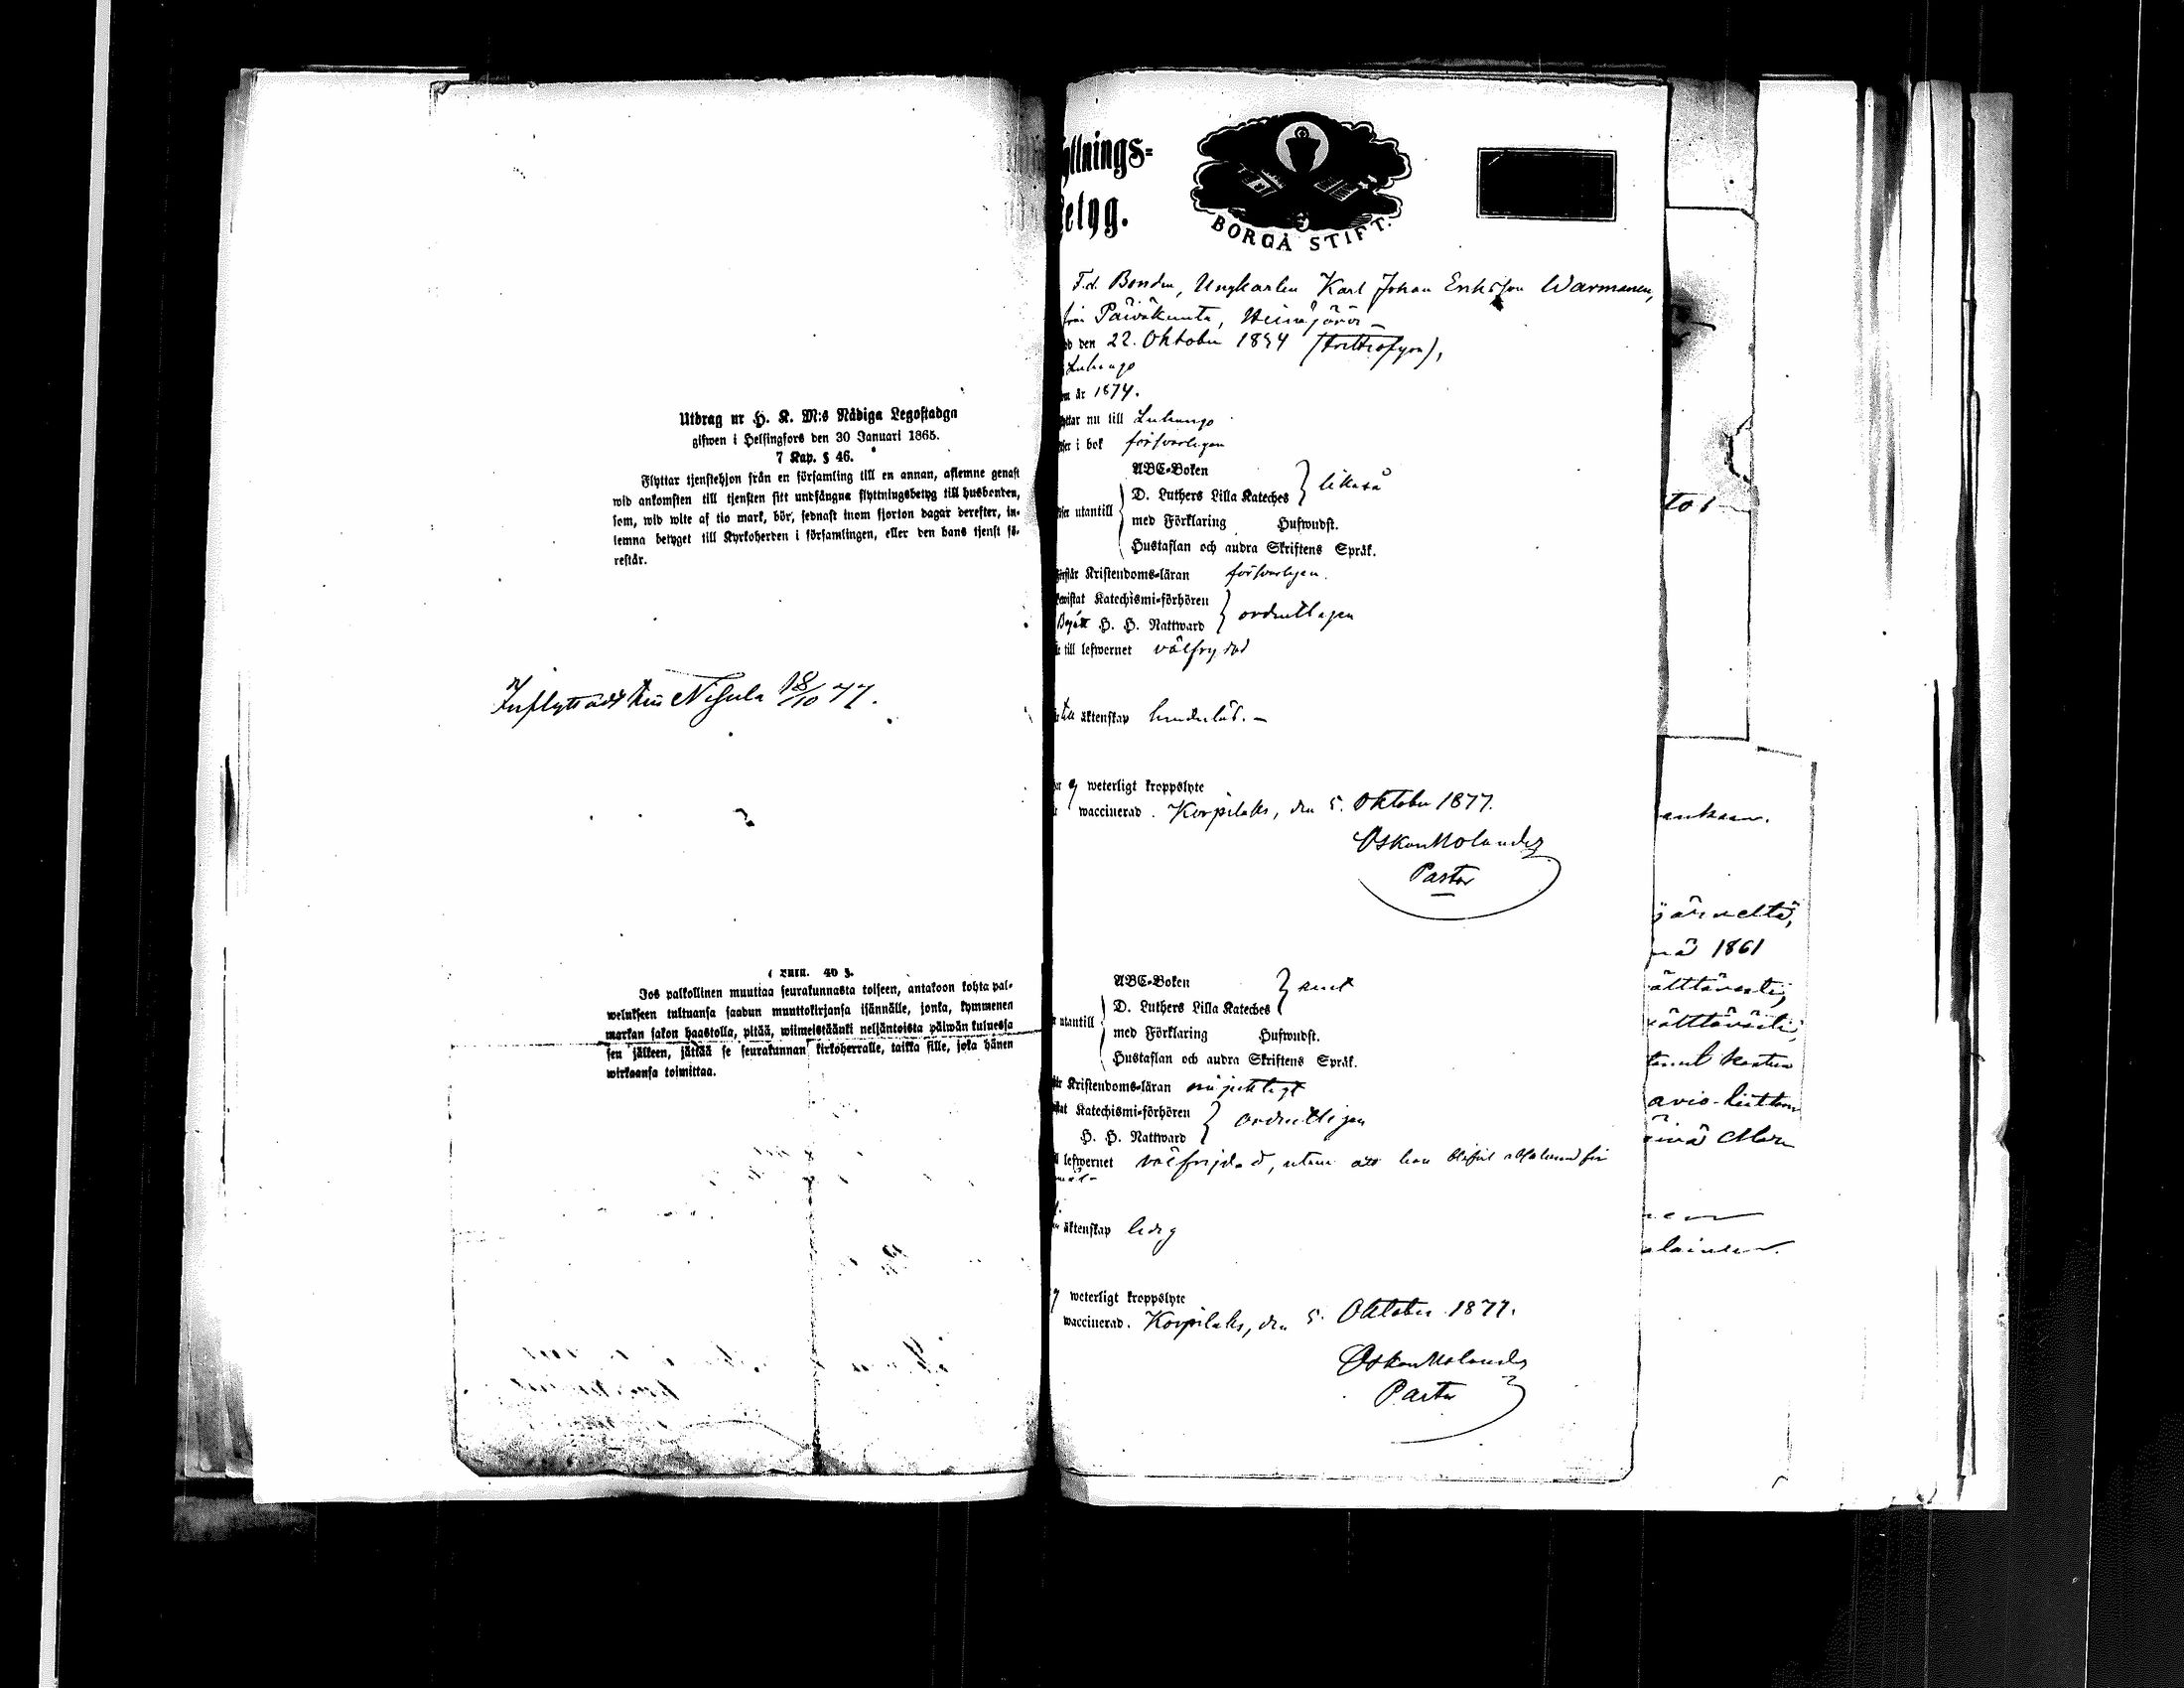 Utdrag ur H. K. M:s Nådiga Legostadga
gifwen i Helsingfors den 30 Januari 1865.
7 Kap. § 46.
Flyttar tjenstehjon från en församling till en annan, aflemne genast
wid ankomsten till tjensten sitt undfångna flyttningsbetyg till husbonden,
som, wid wite af tio mark, bör, sednast inom fjorton dagar derefter, in-
lemna betyget till Kyrkoherden i församlingen, eller den hans tjenst fö-
restår.
Inflyttadt Nisula 18/10 77.
40 §.
Jos palkollinen muuttaa seurakunnasta toiseen, antakoon kohta pal-
welukseen tultuansa saadun muuttokirjansa isännälle, jonka, kymmenen
markan sakon haastolla, pitää, wiimeistäänki neljäntoista päiwän kuluessa
sen jälkeen, jättää se seurakunnan kirkoherralle, taikka sille, joka hänen
wirkaansa toimittaa.
yttnings-
etyg.
BORGÅ STIFT.
F.d. Bonden, Ungkarlen Karl Johan Eriksson Warmanen,
från Päiväkunta,
den 22. Oktober 1854
Luhango
år 1874.
yttar nu till Luhango
i bok försvarligen
ABC-Boken
D. Luthers Lilla Kateches } likaså
utantill
med Förklaring Hufwudst.
Hustaflan och andra Skriftens Språk.
förstår Kristendoms-läran försvarligen.
bewistat Katechismi-förhören } ordentligen
Begått H. H. Nattward
till lefwernet välfrejdad
till äktenskap hinderlös. –
ej weterligt kroppslyte
waccinerad. Korpilaks, den 5. Oktober 1877.
Oskar Molander
Pastor
ABC-Boken
D. Luthers Lilla Kateches } svet
utantill
med Förklaring Hufwudst.
Hustaflan och andra Skriftens Språk.
Kristendoms-läran nöjaktigt
Katechismi-förhören } ordentligen
H. H. Nattward
lefwernet välfrejdad, utom att han blifvit
äktenskap ledig
weterligt kroppslyte
waccinerad. Korpilaks, den 5. Oktober 1877.
Oskar Molander
Pastor
järveltä,
nä 1861
ättäwästi;
avio-liittoon